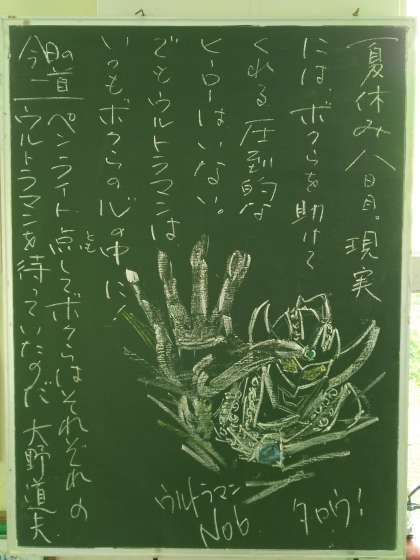 夏休み八日目。現実
には、ボクらを助けて
くれる圧倒的な
ヒーローはいない。
でもウルトラマンは
いつもボクらの心の中に!
今日の道
一
ペンライト点してボクらはそれぞれの
とも
ウルトラマンを待っていたのだ 大野道夫
ウルトラマン
No6
タロウ!